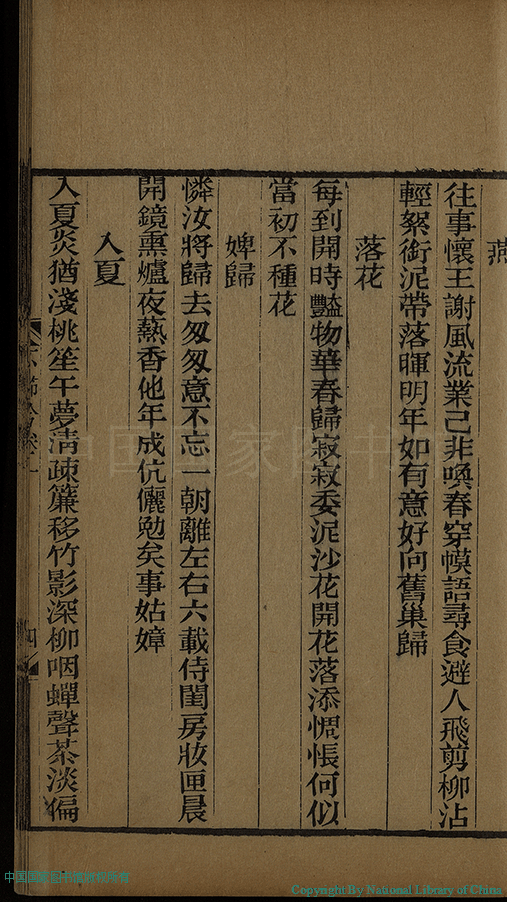 燕
往事懷王謝風流業已非喚春穿幙語尋食避人飛剪柳沾
輕絮銜泥帶落暉明年如有意好向舊巢歸
落花
每到開時豔物華春歸寂寂委泥沙花開花落添惆悵何似
當初不種花
婢歸
憐汝將歸去匆匆意不忘一朝離左右六載侍閨房妝匣晨
開鏡熏爐夜熱香他年成伉儷勉矣事姑嫜
入夏
入夏炎猶淺桃笙午夢淸疎簾移竹影深柳咽蟬聲茶淡偏
四
中国国家图书馆
中国国家图书馆数字版所有
Copyright By National Library of China